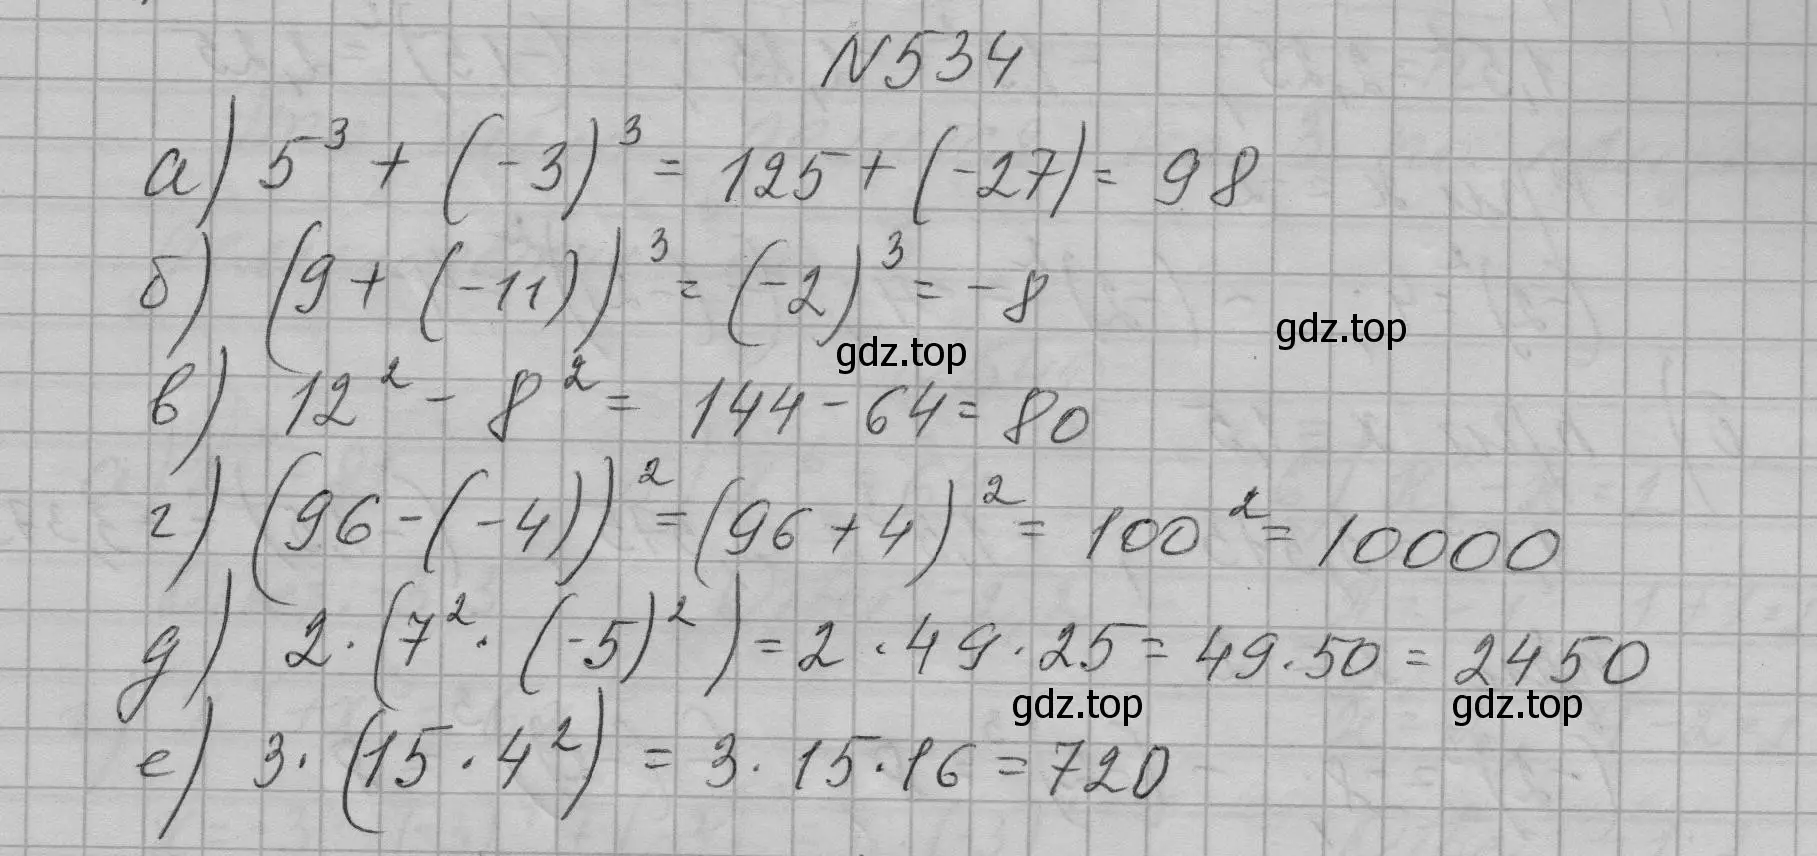 N534
а) 5³ + (-3)³ = 125 + (-27) = 98
б) (9 + (-11))³ = (-2)³ = -8
gdz.top
gdz.top
в) 12² - 8² = 144 - 64 = 80
г) (96 - (-4))² = (96 + 4)² = 100² = 10000
д) 2 · (7² · (-5)²) = 2 · 49 · 25 = 49 · 50 = 2450
gdz.top
gdz.top
е) 3 · (15 · 4²) = 3 · 15 · 16 = 720